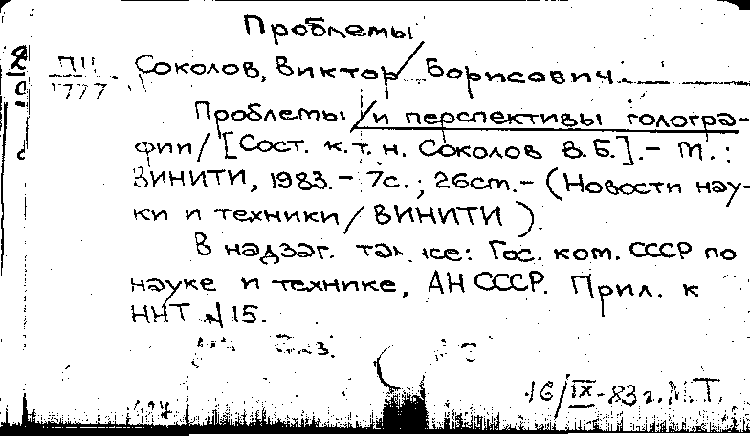 Проблемы
П11 Соколов, Виктор/Борисович.
1777
Проблемы /и перспективы гологра-
фии/ [Сост. к.т.н. Соколов В.Б.].- М.:
ВИНИТИ, 1983.- 7с.; 26см.- (Новости нау-
ки и техники/ВИНИТИ)
В надзаг. также: Гос. ком. СССР по
науке и технике, АН СССР. Прил. к
ННТ №15.
16/IX-83г. М.Т.